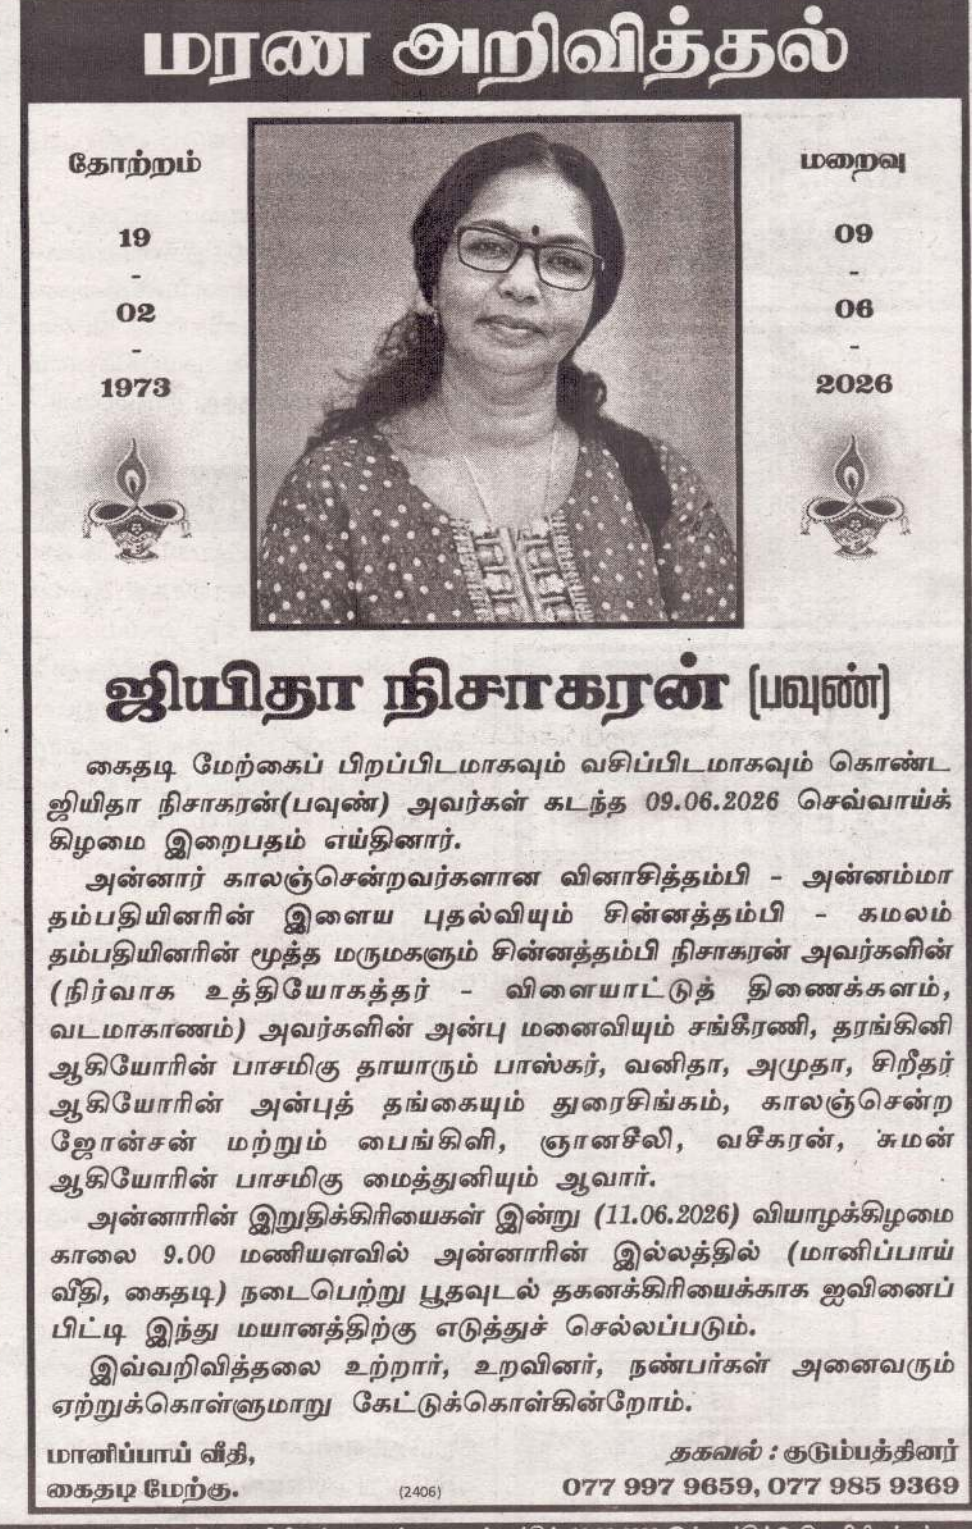 மரண அறிவித்தல்
தோற்றம்
19
-
02
-
1973
மறைவு
09
-
06
-
2026
ஜியிதா நிசாகரன் (பவுண்)
கைதடி மேற்கைப் பிறப்பிடமாகவும் வசிப்பிடமாகவும் கொண்ட
ஜியிதா நிசாகரன்(பவுண்) அவர்கள் கடந்த 09.06.2026 செவ்வாய்க்
கிழமை இறைபதம் எய்தினார்.
அன்னார் காலஞ்சென்றவர்களான வினாசித்தம்பி - அன்னம்மா
தம்பதியினரின் இளைய புதல்வியும் சின்னத்தம்பி - கமலம்
தம்பதியினரின் மூத்த மருமகளும் சின்னத்தம்பி நிசாகரன் அவர்களின்
(நிர்வாக உத்தியோகத்தர் - விளையாட்டுத் திணைக்களம்,
வடமாகாணம்) அவர்களின் அன்பு மனைவியும் சங்கீரணி, தரங்கினி
ஆகியோரின் பாசமிகு தாயாரும் பாஸ்கர், வனிதா, அமுதா, சிறீதர்
ஆகியோரின் அன்புத் தங்கையும் துரைசிங்கம், காலஞ்சென்ற
ஜோன்சன் மற்றும் பைங்கிளி, ஞானசீலி, வசீகரன், சுமன்
ஆகியோரின் பாசமிகு மைத்துனியும் ஆவார்.
அன்னாரின் இறுதிக்கிரியைகள் இன்று (11.06.2026) வியாழக்கிழமை
காலை 9.00 மணியளவில் அன்னாரின் இல்லத்தில் (மானிப்பாய்
வீதி, கைதடி) நடைபெற்று பூதவுடல் தகனக்கிரியைக்காக ஐவினைப்
பிட்டி இந்து மயானத்திற்கு எடுத்துச் செல்லப்படும்.
இவ்வறிவித்தலை உற்றார், உறவினர், நண்பர்கள் அனைவரும்
ஏற்றுக்கொள்ளுமாறு கேட்டுக்கொள்கின்றோம்.
மானிப்பாய் வீதி,
கைதடி மேற்கு.
(2406)
தகவல் : குடும்பத்தினர்
077 997 9659, 077 985 9369